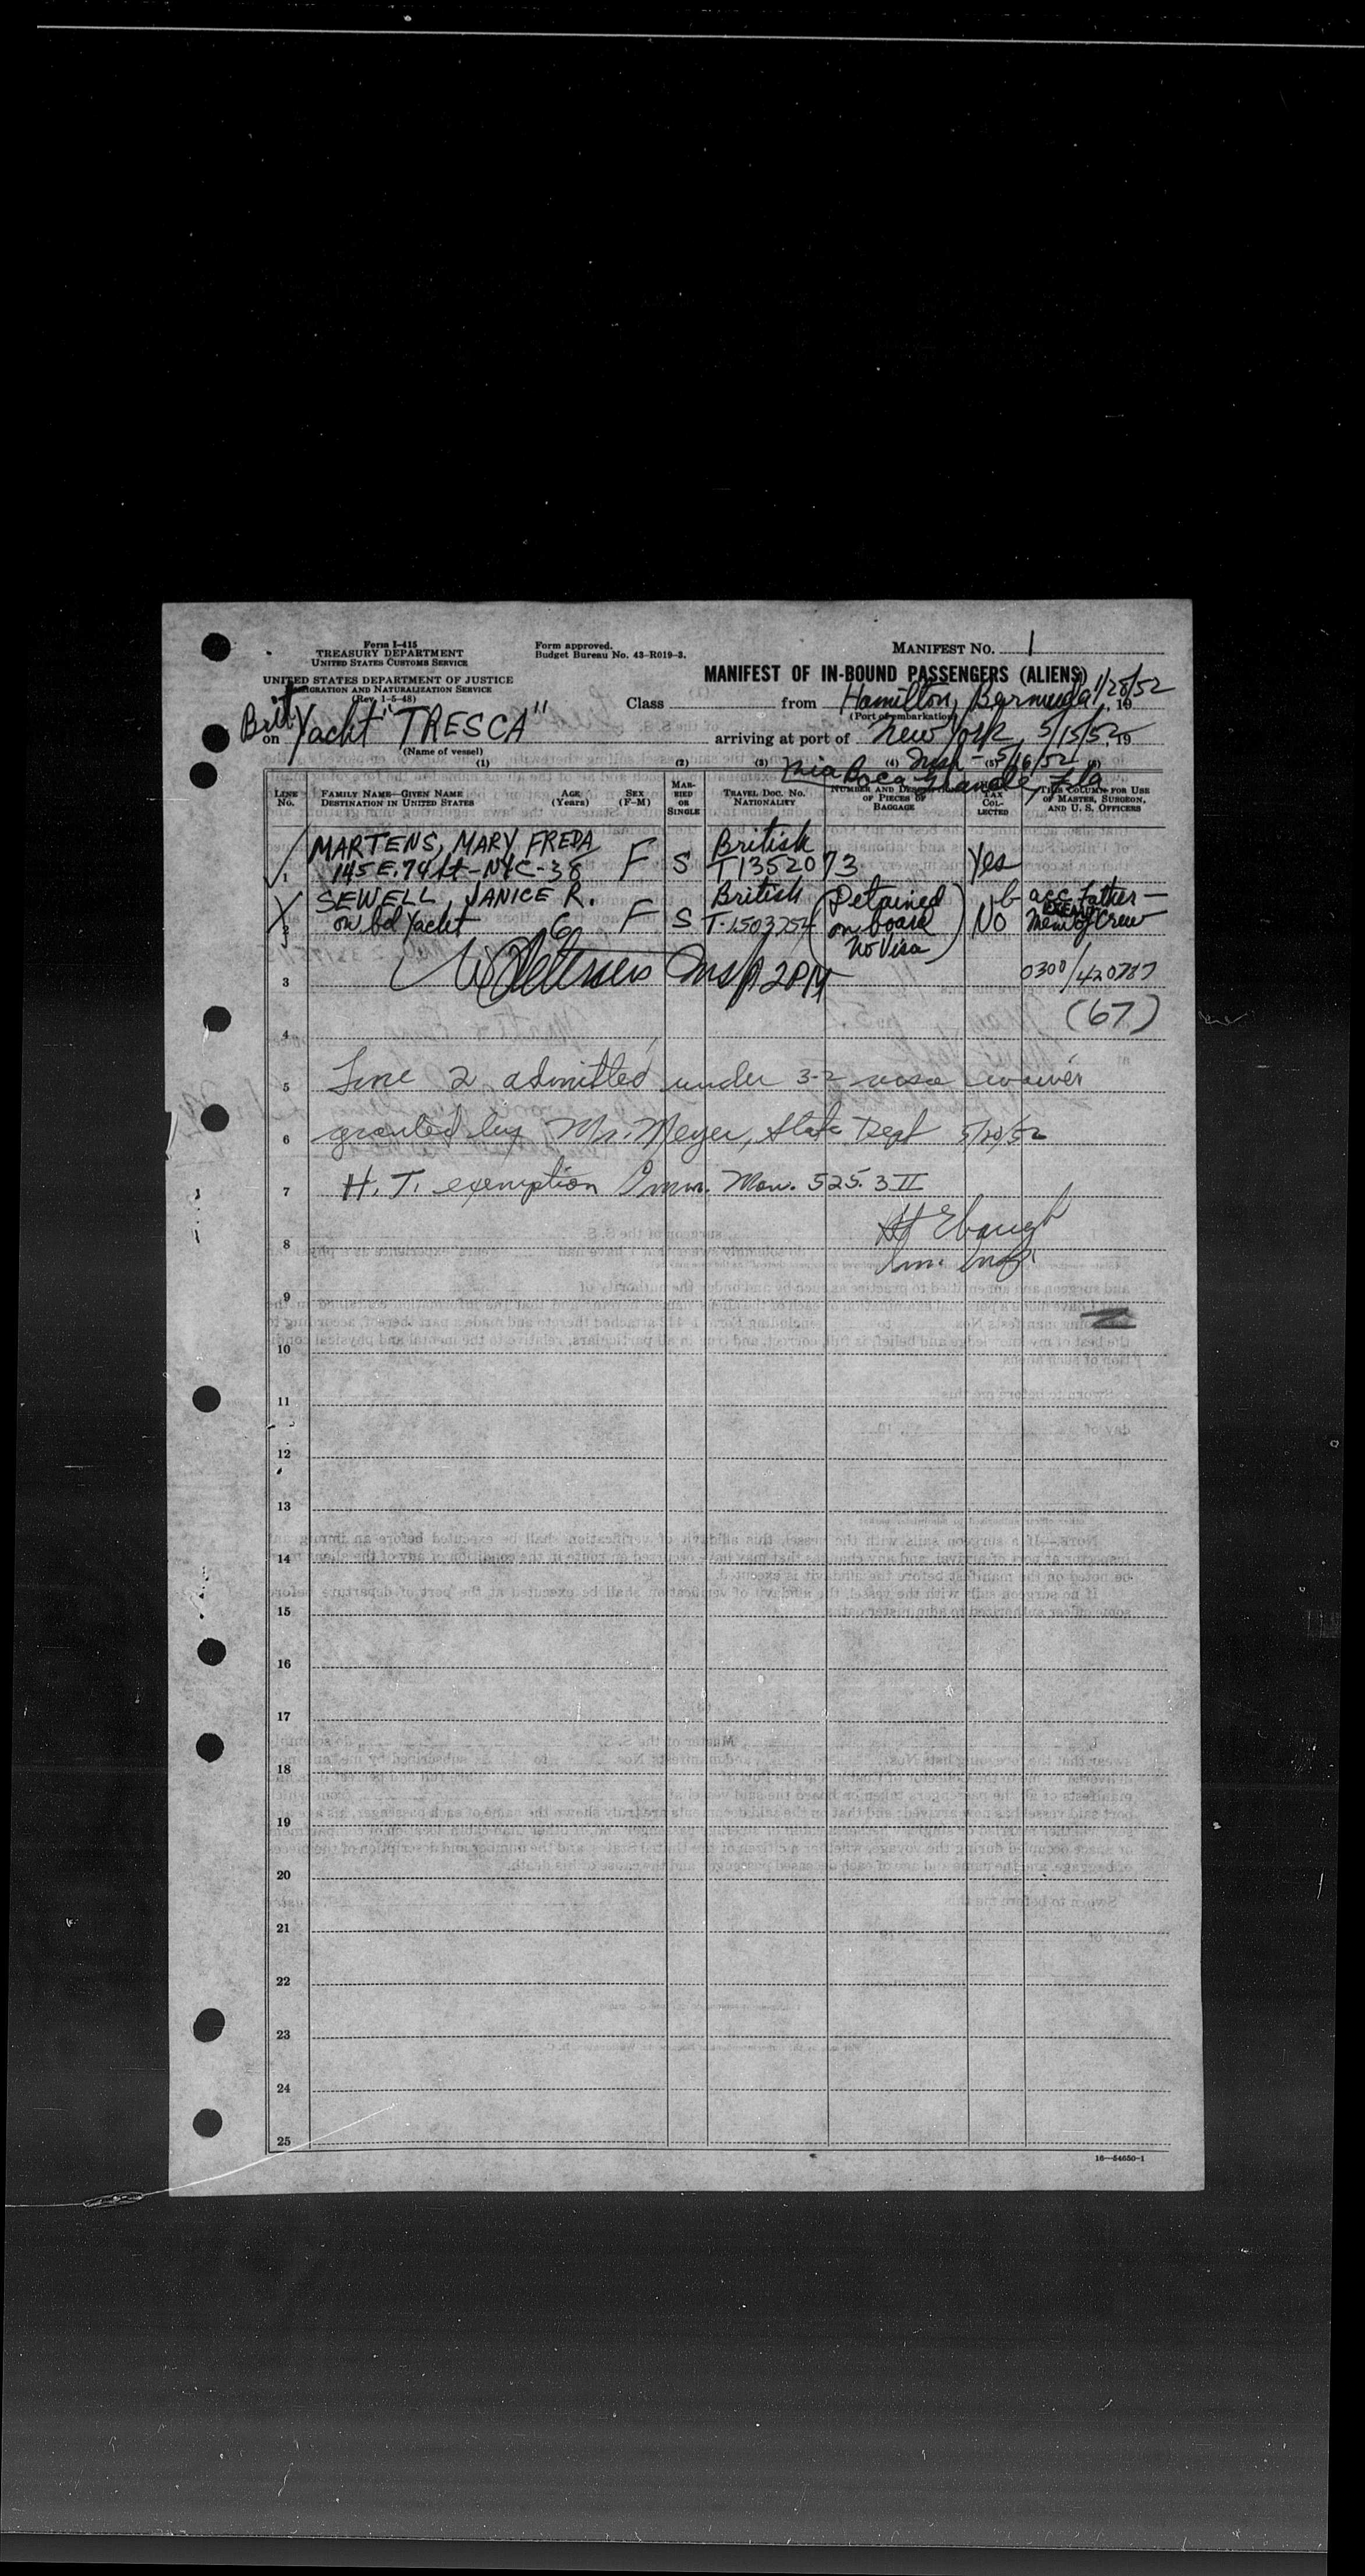 Form I-415
TREASURY DEPARTMENT
UNITED STATES CUSTOMS SERVICE
UNITED STATES DEPARTMENT OF JUSTICE
IMMIGRATION AND NATURALIZATION SERVICE
(Rev. 1-5-48)
Form approved.
Budget Bureau No. 43-R019-3.
MANIFEST No. 1
MANIFEST OF IN-BOUND PASSENGERS (ALIENS)
Class from Hamilton, Bermuda 1/28/52, 19
(Port of embarkation)
Brit.
on Yacht "TRESCA" arriving at port of New York, 5/15/52, 19
(Name of vessel)
Insp - 5/16/52
(1) (2) (3) (4) (5) (6)
via Boca Grande, Fla
LINE No. FAMILY NAME—GIVEN NAME DESTINATION IN UNITED STATES AGE (Years) SEX (F-M) MARRIED OR SINGLE TRAVEL DOC. No. NATIONALITY NUMBER AND DESCRIPTION OF PIECES OF BAGGAGE TAX COLLECTED THIS COLUMN FOR USE OF MASTER, SURGEON, AND U. S. OFFICERS
MARTENS, MARY FREDA British
1 145 E. 74 St - NYC - 38 F S T1352073 Yes
SEWELL, JANICE R. British (Detained acc father —
2 on bd Yacht 6 F S T-1503754 on board No Mem of Crew
No Visa)
Insp 2PM
3 0300/420787
4 (67)
5 Line 2 admitted under 3-2 visa waiver
6 granted by Mr. Meyer, State Dept 5/20/52
7 H. T. exemption Imm. Man. 525.3 II
Ebaugh
8 Im. Insp.
9
10
11
12
13
14
15
16
17
18
19
20
21
22
23
24
25
16—54650-1